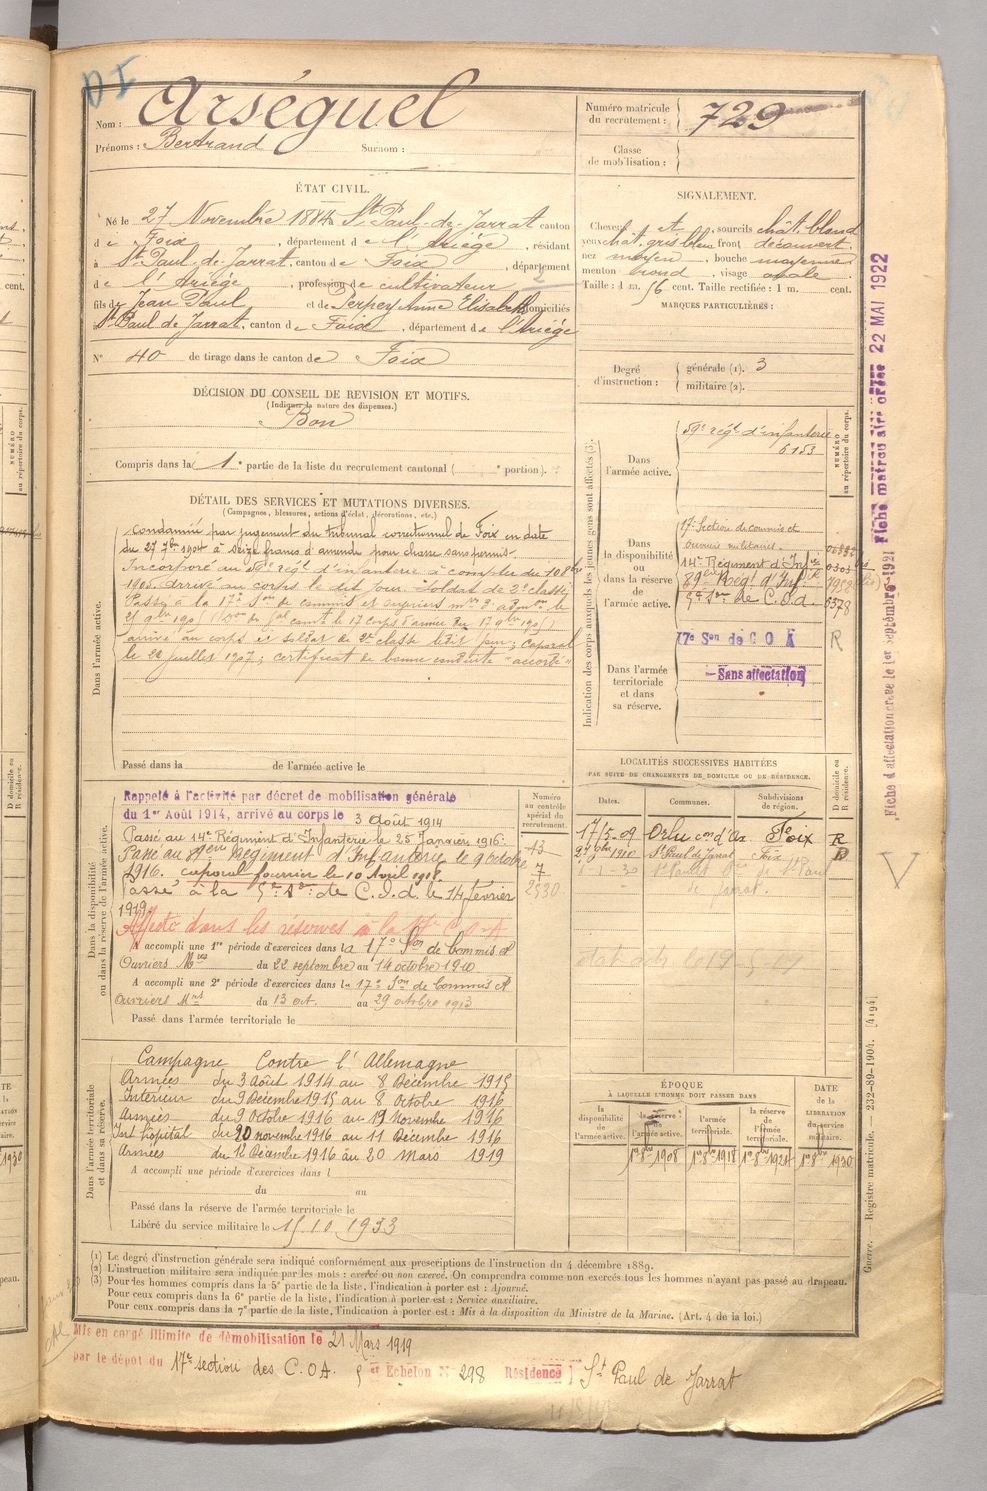 DI
Nom : Arséguel
Prénoms : Bertrand Surnom :
Numéro matricule du recrutement : 729
Classe de mobilisation :
ÉTAT CIVIL.
Né le 27 Novembre 1884 à St Paul-de-Jarrat canton
de Foix, département de l'Ariège, résidant
à St Paul-de-Jarrat, canton de Foix, département
de l'Ariège, profession de cultivateur
fils de Jean Paul et de Serpey Anne Elisabeth domiciliés
St Paul de Jarrat, canton de Foix, département de l'Ariège
N° 40 de tirage dans le canton de Foix
DÉCISION DU CONSEIL DE REVISION ET MOTIFS.
(Indiquer la nature des dispenses.)
Bon
Compris dans la 1e partie de la liste du recrutement cantonal ( e portion).
SIGNALEMENT.
Cheveux et sourcils chât. blond
yeux chât. gris bleu front découvert
nez moyen, bouche moyenne
menton rond, visage ovale
Taille : 1 m. 56 cent. Taille rectifiée : 1 m. cent.
MARQUES PARTICULIÈRES :
Degré d'instruction : générale (1). 3
militaire (2).
DÉTAIL DES SERVICES ET MUTATIONS DIVERSES.
(Campagnes, blessures, actions d'éclat, décorations, etc.)
Dans l'armée active.
Condamné par jugement du tribunal correctionnel de Foix en date
du 27 7bre 1904 à seize francs d'amende pour chasse sans permis.
Incorporé au 59e régt d'infanterie à compter du 10 8bre
1905. Arrivé au corps le dit jour. Soldat de 2e classe
Passé à la 17e Son de commis et ouvriers mres d'admon le
arrivé au corps et soldat de 2e classe le dit jour; caporal
le 22 juillet 1907; certificat de bonne conduite "accordé"
Passé dans la de l'armée active le
Indication des corps auxquels les jeunes gens sont affectés (3).
NUMÉRO au répertoire du corps.
Dans l'armée active.
59e régt d'infanterie 6153
Dans la disponibilité ou dans la réserve de l'armée active.
17e Section de commis et
ouvriers militaires.
14e Régiment d'Infie
89e Régt d'Inf.
5e Son de C.O.A. 6578
17e Son de C O A R
Dans l'armée territoriale et dans sa réserve.
Sans affectation
Fiche matricule créée 22 MAI 1922
Fiche d'affectation créée le 1er septembre 1921
LOCALITÉS SUCCESSIVES HABITÉES
PAR SUITE DE CHANGEMENTS DE DOMICILE OU DE RÉSIDENCE.
Dates. Communes. Subdivisions de région. D domicile ou R résidence.
17/5-09 Orlu con d'Ax Foix R
1910 St Paul de Jarrat Foix D
Dans la disponibilité ou dans la réserve de l'armée active.
Numéro au contrôle spécial du recrutement.
Rappelé à l'activité par décret de mobilisation générale
du 1er Août 1914, arrivé au corps le 3 Août 1914
Passé au 14e Régiment d'Infanterie le 25 Janvier 1916.
Passé au 89e Régiment d'Infanterie le 9 Octobre
1916. caporal fourrier le 10 Avril 1918.
Passé à la 5e Son de C.O.A. le 14 Février
1919
Affecté dans les réserves à la 17e C.O.A
A accompli une 1re période d'exercices dans la 17e Son de Commis et
Ouvriers Mres du 22 septembre au 14 octobre 1910
A accompli une 2e période d'exercices dans la 17e Son de Commis et
Ouvriers Mres du 13 oct. au 29 octobre 1913
Passé dans l'armée territoriale le
Dans l'armée territoriale et dans sa réserve.
Campagne Contre l'Allemagne
Armées du 3 Août 1914 au 8 Décembre 1915
Intérieur du 9 Décembre 1915 au 8 Octobre 1916
Armées du 9 Octobre 1916 au 19 Novembre 1916
Int hôpital du 20 novembre 1916 au 11 Décembre 1916
Armées du 12 Décembre 1916 au 20 Mars 1919
A accompli une période d'exercices dans l
du au
Passé dans la réserve de l'armée territoriale le
Libéré du service militaire le 15.10.1933
ÉPOQUE
À LAQUELLE L'HOMME DOIT PASSER DANS
la disponibilité de l'armée active. la réserve de l'armée active. l'armée territoriale. la réserve de l'armée territoriale. DATE de la LIBÉRATION du service militaire.
1er 8bre 1908 1er 8bre 1918 1er 8bre 1924 1er 8bre 1930
Guerre. — Registre matricule. — 232-89-1904. [4194]
(1) Le degré d'instruction générale sera indiqué conformément aux prescriptions de l'instruction du 4 décembre 1889.
(2) L'instruction militaire sera indiquée par les mots : exercé ou non exercé. On comprendra comme non exercés tous les hommes n'ayant pas passé au drapeau.
(3) Pour les hommes compris dans la 5e partie de la liste, l'indication à porter est : Ajourné.
Pour ceux compris dans la 6e partie de la liste, l'indication à porter est : Service auxiliaire.
Pour ceux compris dans la 7e partie de la liste, l'indication à porter est : Mis à la disposition du Ministre de la Marine. (Art. 4 de la loi.)
Mis en congé illimité de démobilisation le 21 Mars 1919
par le dépôt du 17e section des C.O.A. 5e Echelon N° 298 Résidence St Paul de Jarrat